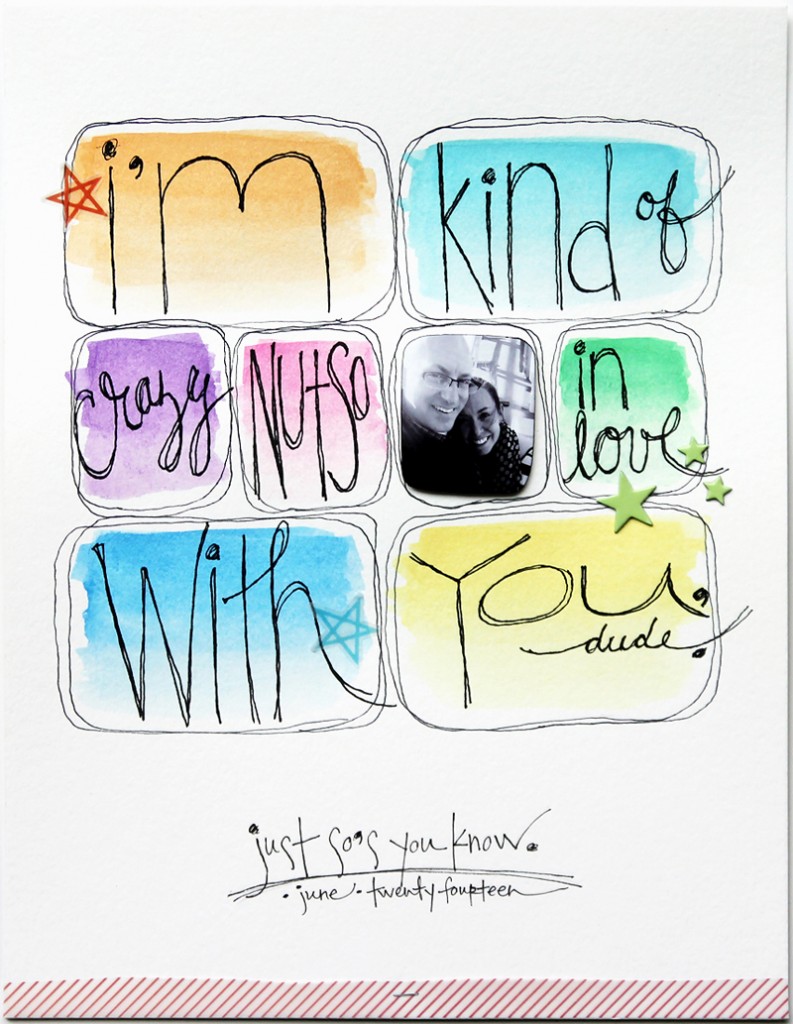 i'm kind of
crazy Nutso in
love
With You,
dude.
just so's you know.
. june . twenty fourteen